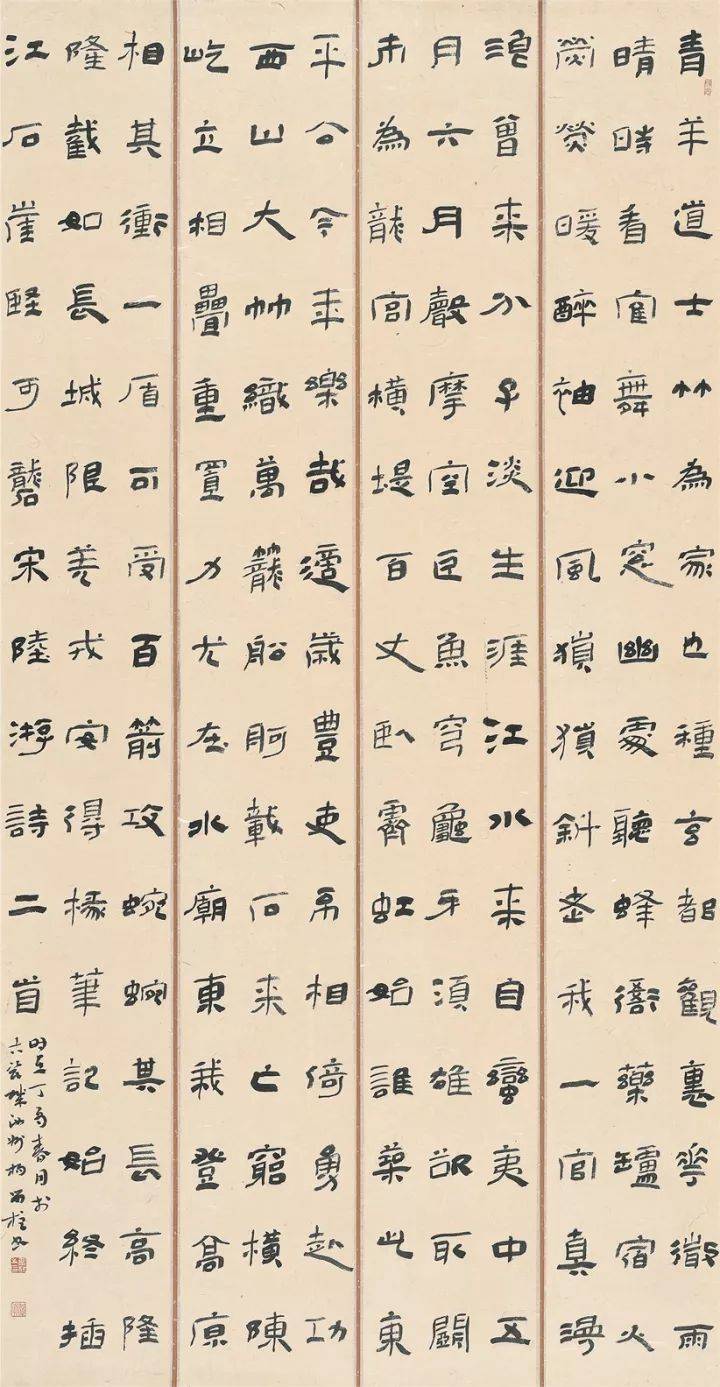 青羊道士竹為家也種玄都觀裏花微雨
晴時看隺舞小窓幽處聽蜂衙藥罏宿火
熒熒暖醉袖迎風獵獵斜老我一官真漫
浪曾来分子淡生涯江水来自蠻夷中五
月六月聲摩空巨魚穹龜牙須雄欲取闤
市為龍宮橫堤百丈卧霽虹始誰築此東
平公今年樂哉適歲豐吏不相倚勇赴功
西山大竹織萬籠船舸載石来亡窮橫陳
屹立相疊重置力尤在水廟東我登高原
相其衝一盾可受百箭攻蜿蜿其長高隆
隆截如長城限羌戎安得椽筆記始終插
江石崖堅可礱宋陸游詩二首
時在丁酉春月於